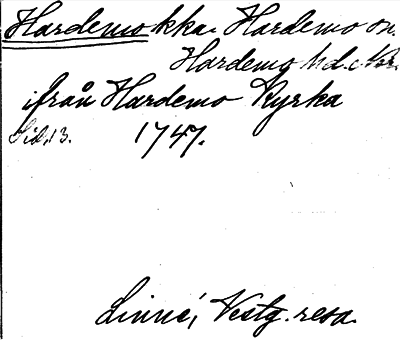 Hardemo kka. Hardemo sn.
Hardemo hd. Nke.
ifrån Hardemo Kyrka
Sid. 13. 1747.
Linné, Vestg. resa.